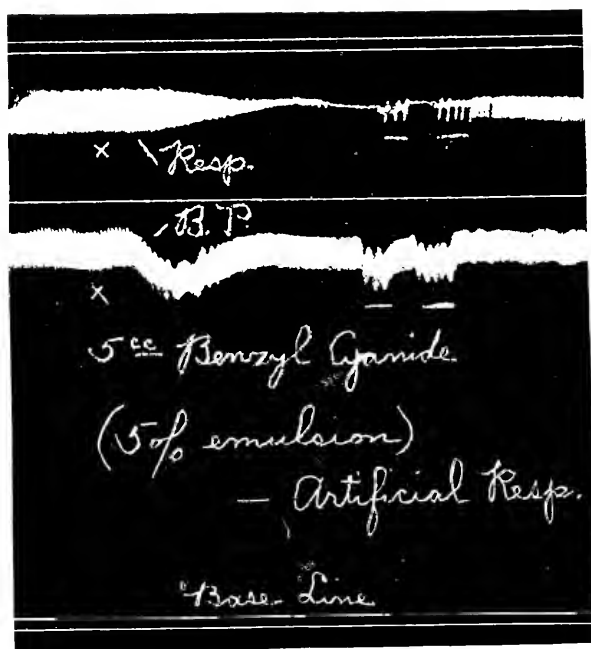 x Resp.
B.P.
x
5 cc Benzyl Cyanide
(5% emulsion)
— Artificial Resp.
Base-Line